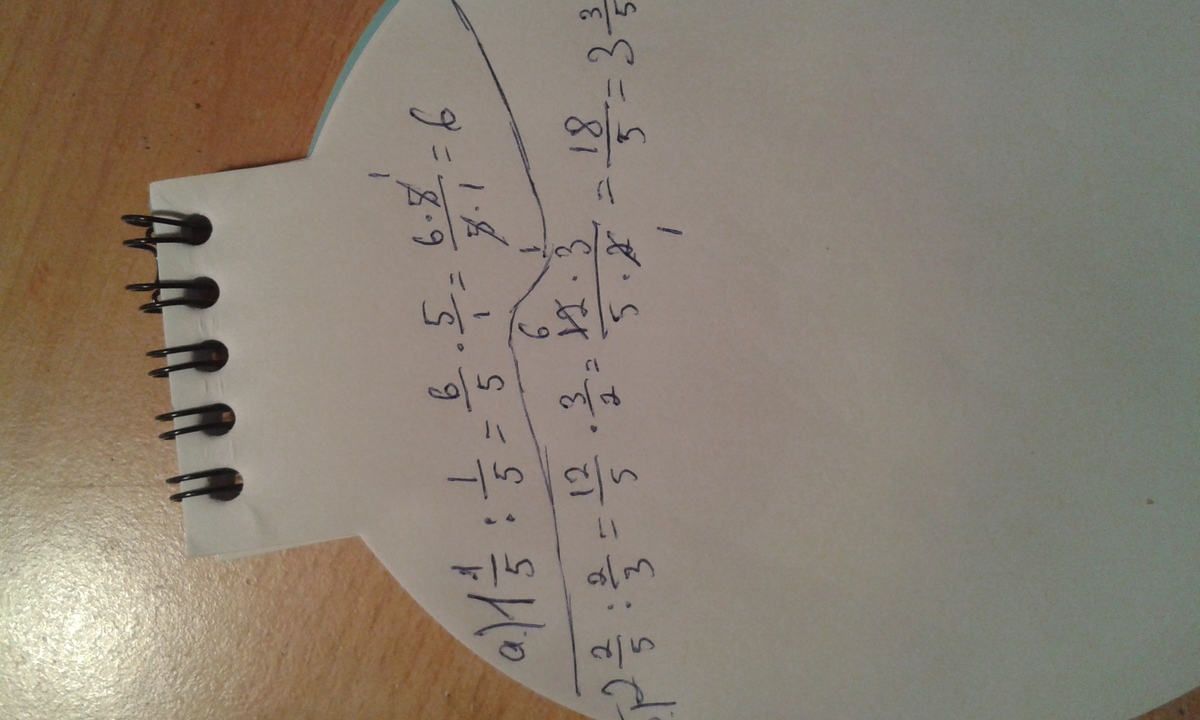 а) 1 1/5 : 1/5 = 6/5 · 5/1 = 6·5/5·1 = 6
2 2/5 : 2/3 = 12/5 · 3/2 = 12·3/5·2 = 18/5 = 3 3/5